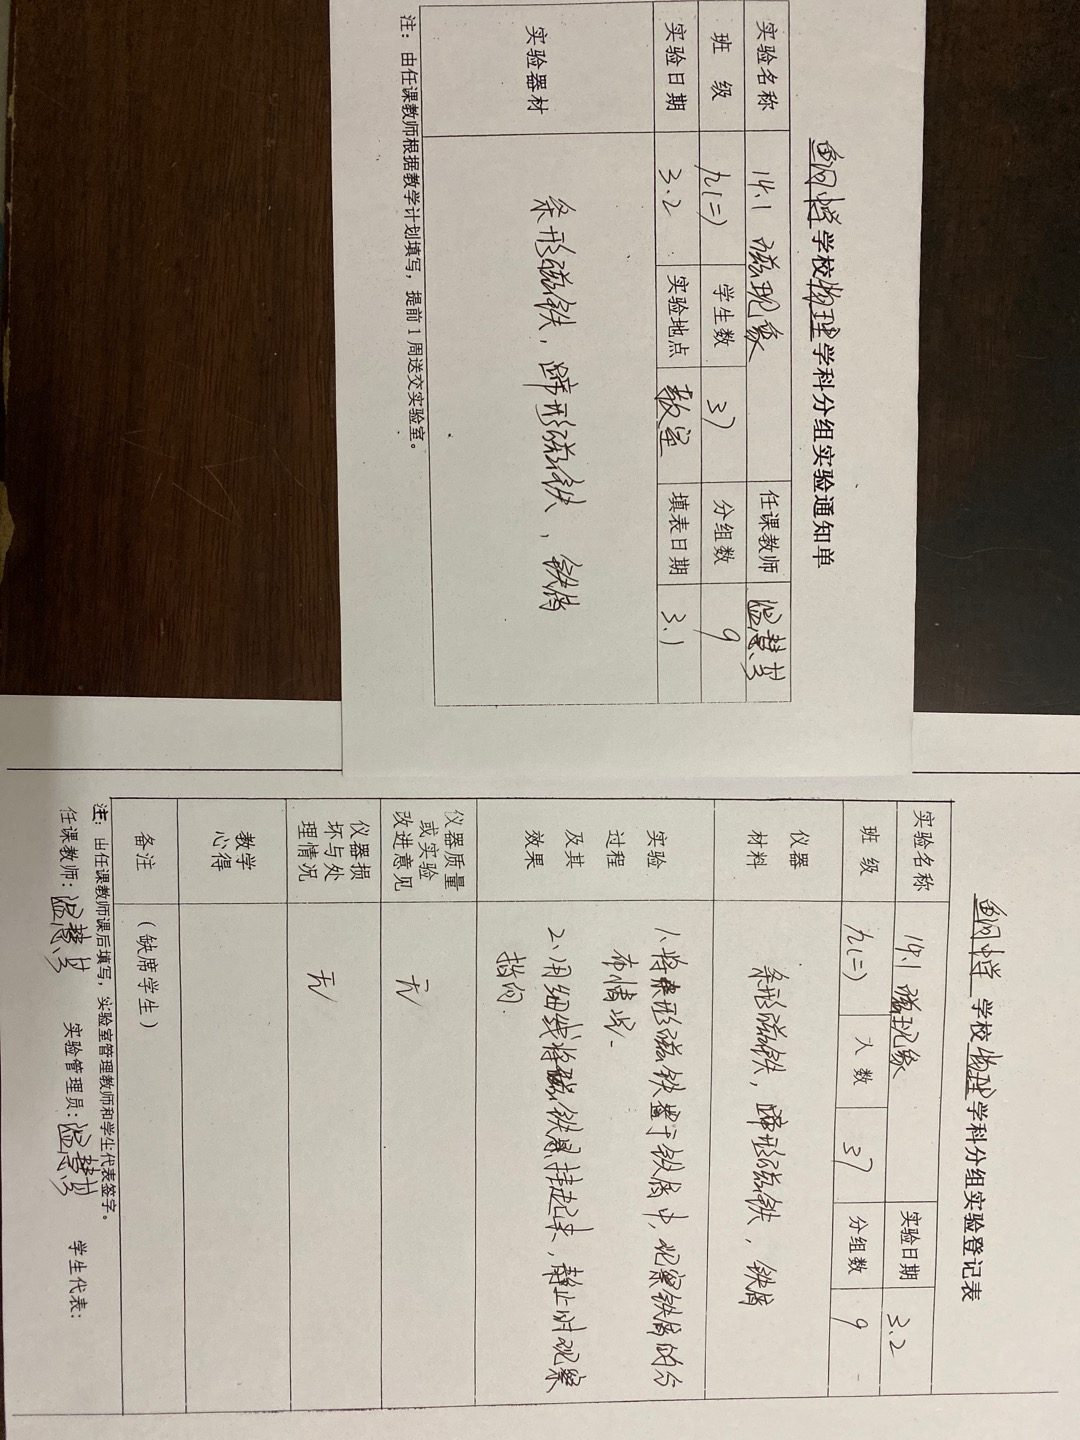 鱼河中学学校物理学科分组实验通知单
实验名称 14.1 磁现象 任课教师
班 级 九(二) 学生数 37 分组数 9
实验日期 3.2 实验地点 教室 填表日期 3.1
实验器材 条形磁铁，蹄形磁铁、铁屑
注：由任课教师根据教学计划填写，提前1周送交实验室。
鱼河中学 学校物理学科分组实验登记表
实验名称 14.1 磁现象 实验日期 3.2
班 级 九(二) 人数 37 分组数 9
仪器材料 条形磁铁，蹄形磁铁，铁屑
实验过程及其效果 1、将条形磁铁置于铁屑中，观察铁屑的分
布情况.
2、用细线将磁铁悬挂起来，静止时观察
指向.
仪器质量或实验改进意见 无
仪器损坏与处理情况 无
教学心得
备注 （缺席学生）
注：由任课教师课后填写，实验室管理教师和学生代表签字。
任课教师： 实验管理员： 学生代表：